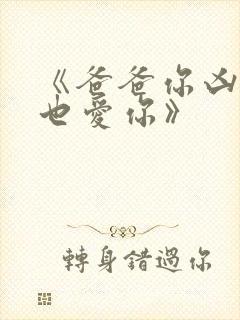 《爸爸你凶
也愛你》
轉身錯過你